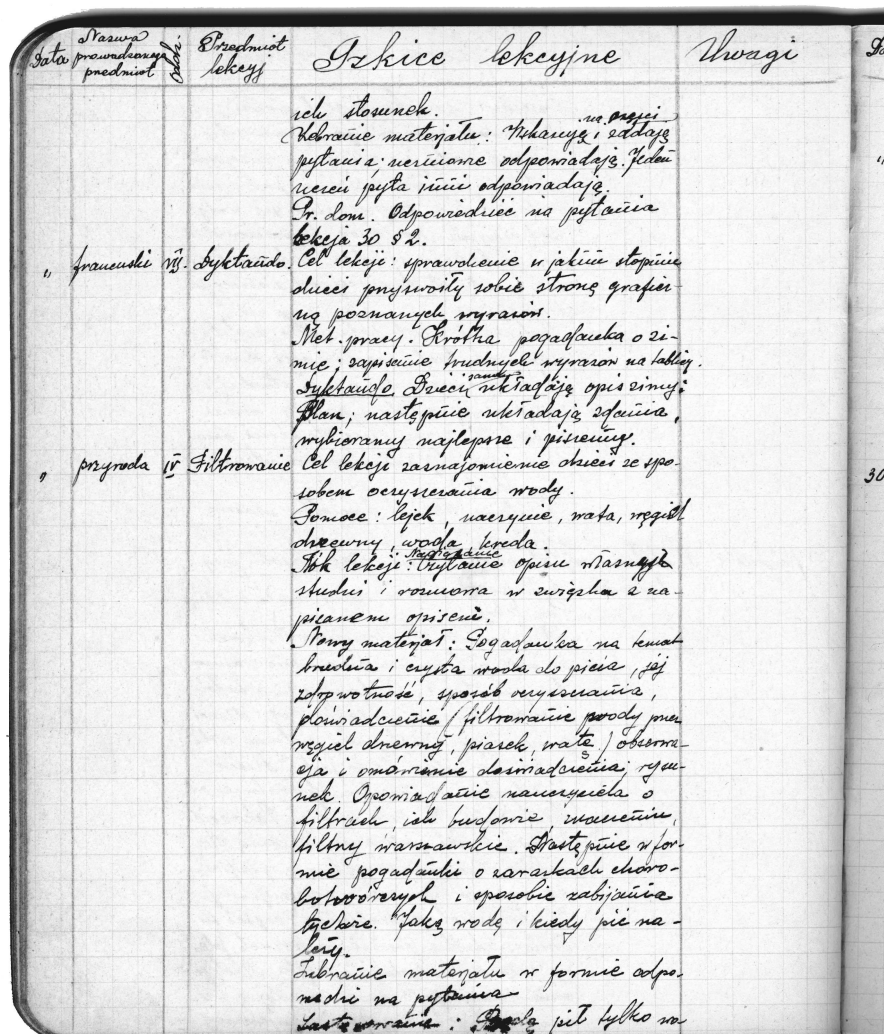 Data Nazwa prowadzonego przedmiot Oddz. Przedmiot lekcyj Szkice lekcyjne Uwagi
ich stosunek.
Zebranie materjału: Wskazuję i zadają
na części
pytania; uczniowie odpowiadają. Jeden
uczeń pyta inni odpowiadają.
Pr. dom. Odpowiedzieć na pytania
lekcja 30 § 2.
„ francuski VII Dyktando. Cel lekcji: sprawdzenie w jakim stopniu
dzieci przyswoiły sobie stronę graficz-
ną poznanych wyrazów.
Met. pracy. Krótka pogadanka o zi-
mie; zapisanie trudnych wyrazów na tablicy.
Dyktando. Dzieci same układają opis zimy:
Plan; następnie układają zdania,
wybieramy najlepsze i piszemy.
„ przyroda IV Filtrowanie Cel lekcji zaznajomienie dzieci ze spo-
sobem oczyszczania wody.
Pomoce: lejek, naczynie, wata, węgiel
drzewny, woda, kreda.
Tok lekcji: Nawiązanie Czytanie opisu własnych
studni i rozmowa w związku z na-
pisanem opisem.
Nowy materjał: Pogadanka na temat
brudna i czysta woda do picia, jej
zdrowotność, sposób oczyszczania,
doświadczenie (filtrowanie wody przez
węgiel drzewny, piasek, watę) obserwa-
cja i omówienie doświadczenia; rysu-
nek. Opowiadanie nauczyciela o
filtrach, ich budowie, znaczeniu,
filtry warszawskie. Następnie w for-
mie pogadanki o zarazkach choro-
botwórczych i sposobie zabijania
tychże. Jaką wodę i kiedy pić na-
leży.
Zebranie materjału w formie odpo-
wiedzi na pytania
Zastosowanie: Będę pił tylko wo
30